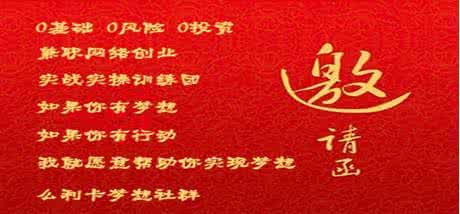 0基础 0风险 0投资
兼职网络创业
实战实操训练团
如果你有梦想
如果你有行动
我就愿意帮助你实现梦想
么利卡梦想社群
邀
请
函